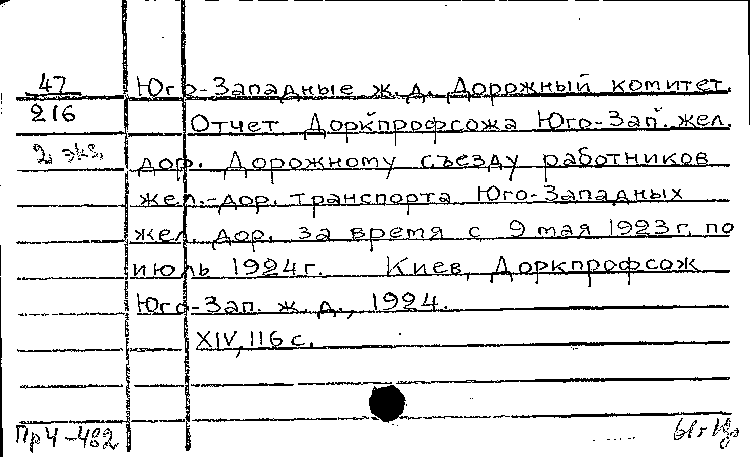 47 Юго-Западные ж. д. Дорожный комитет.
216 Отчет Доркпрофсожа Юго-Зап. жел.
2 экз. дор. Дорожному съезду работников
жел.-дор. транспорта Юго-Западных
жел. дор. за время с 9 мая 1923 г. по
июль 1924 г. Киев, Доркпрофсож
Юго-Зап. ж. д., 1924.
XIV, 116 с.
Пр4-482